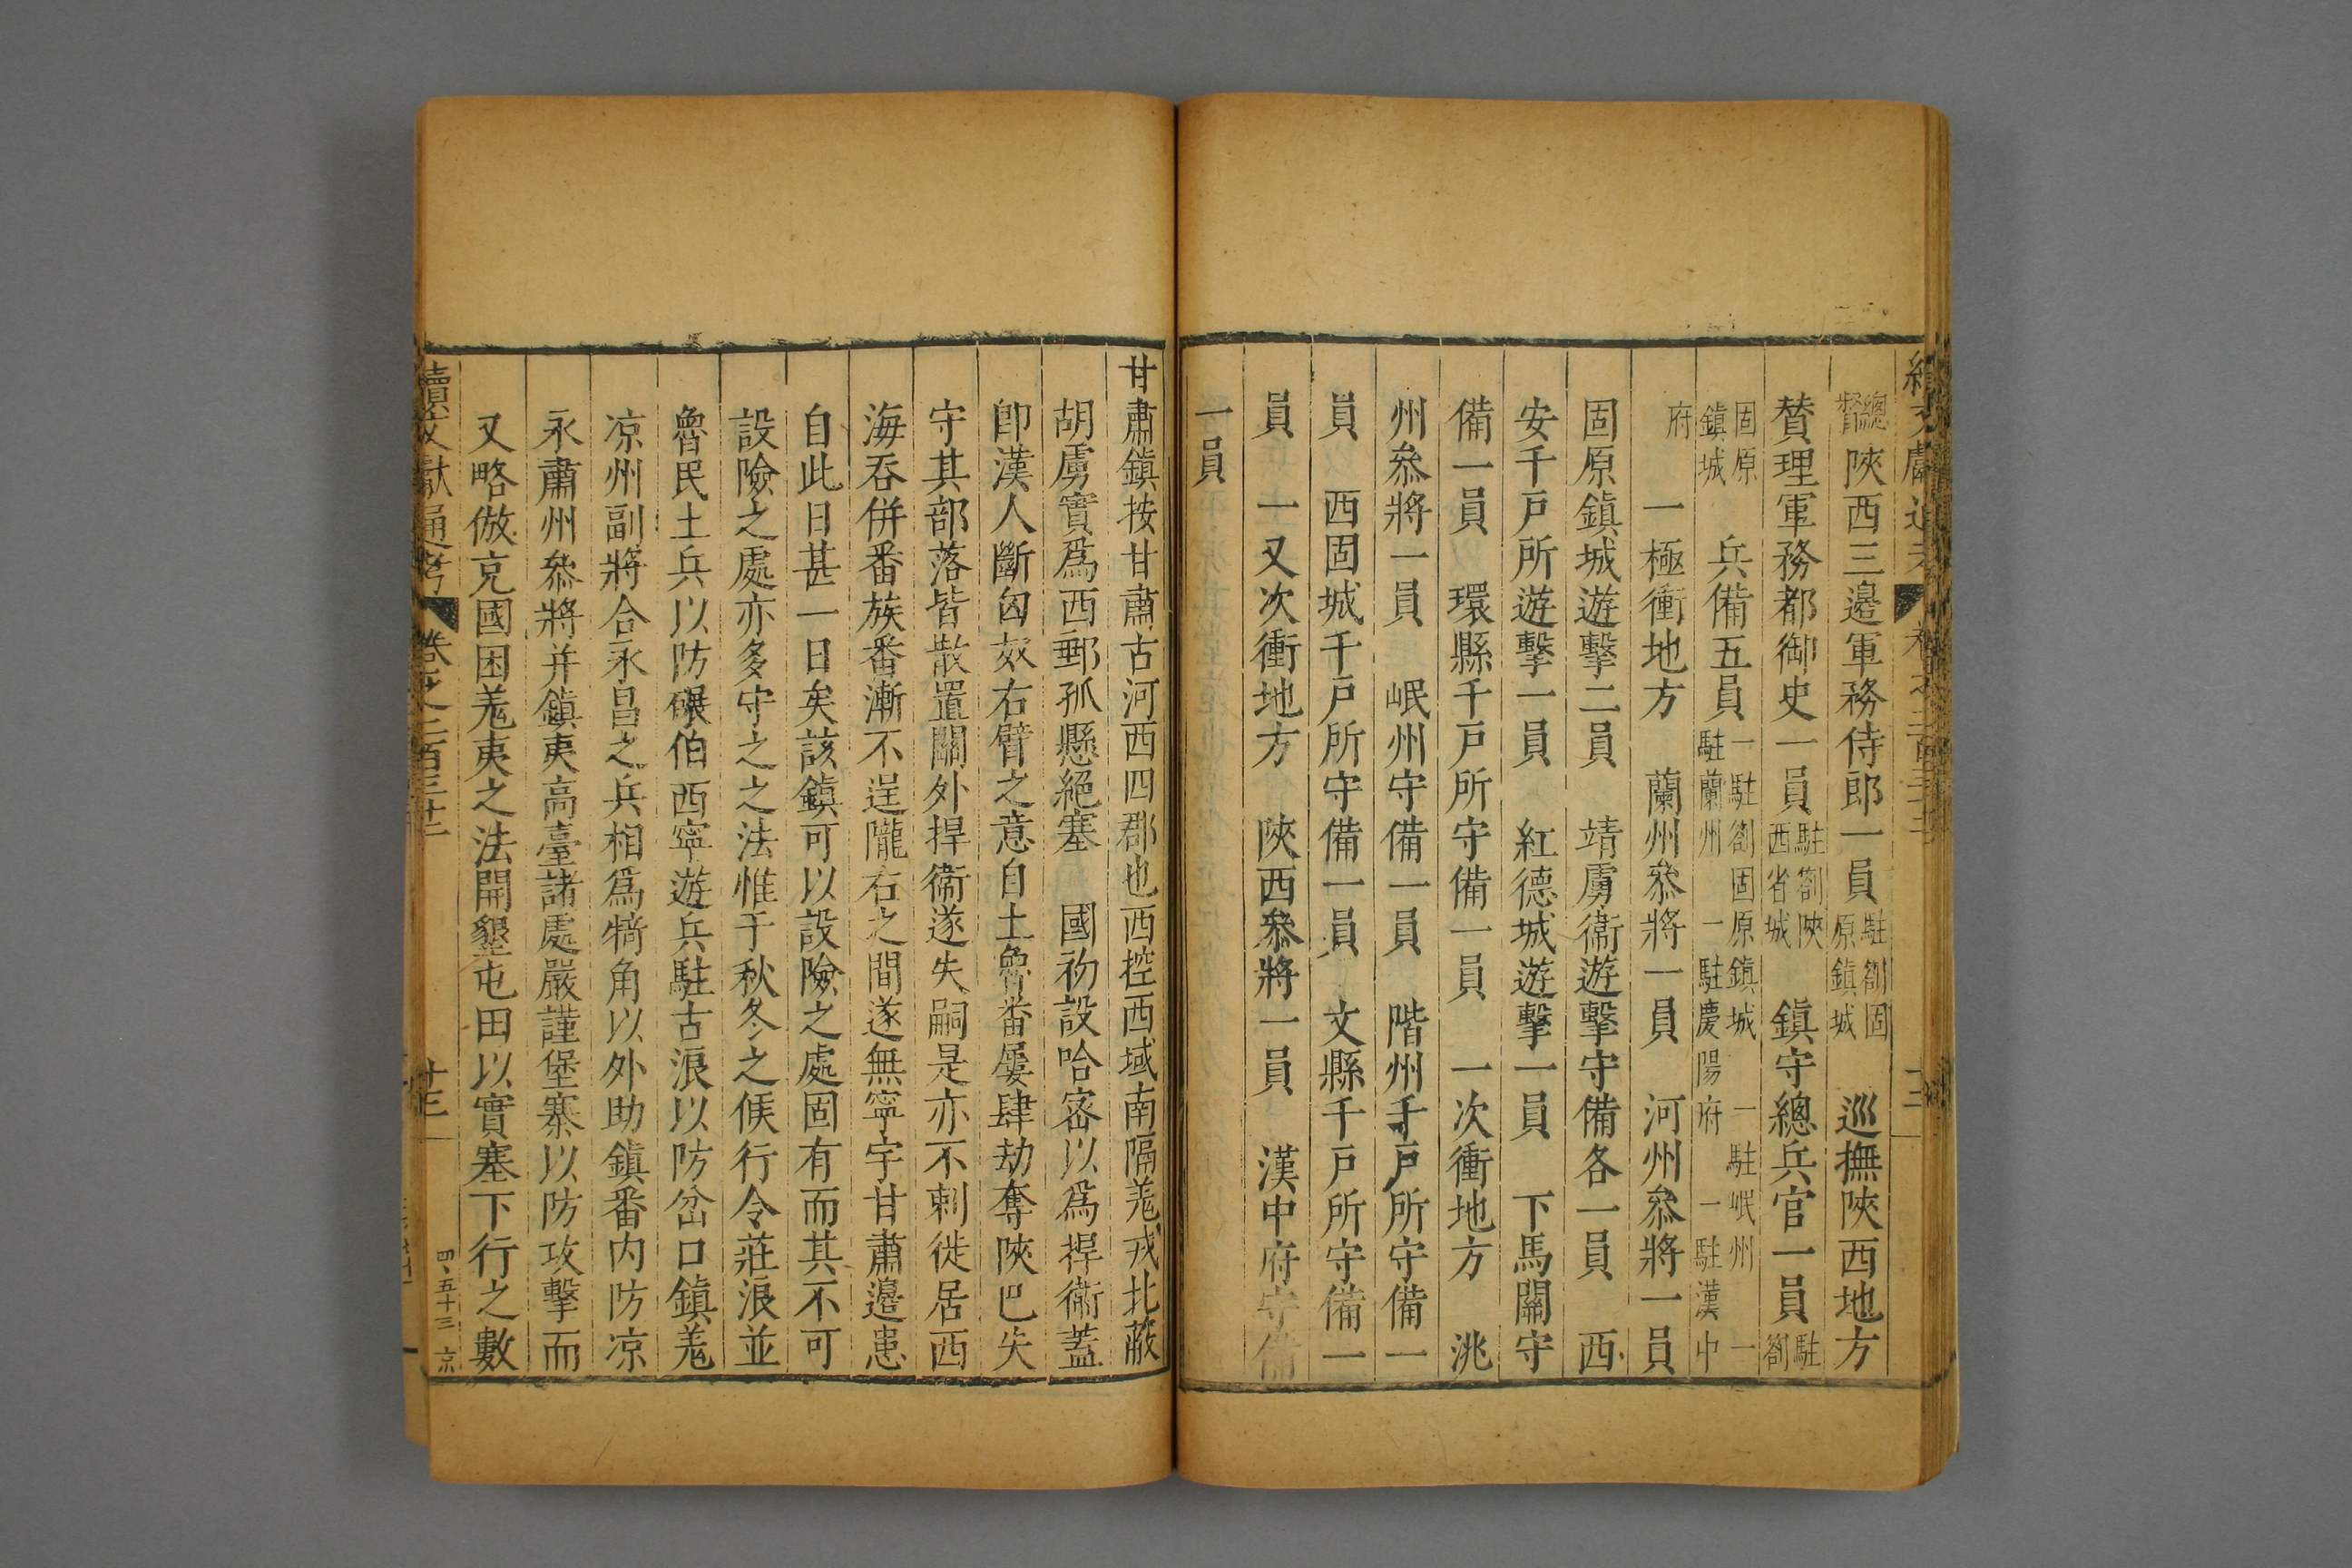 總督陝西三邊軍務侍郎一員駐劄固原鎮城 巡撫陝西地方
賛理軍務都御史一員駐劄陝西省城 鎮守總兵官一員駐劄
固原鎮城 兵備五員一駐劄固原鎮城 一駐岷州 一駐蘭州 一駐慶陽府 一駐漢中
府 一極衝地方 蘭州叅將一員 河州叅將一員
固原鎮城遊擊二員 靖虜衞遊擊守備各一員 西
安千戸所遊擊一員 紅德城遊擊一員 下馬關守
備一員 環縣千戸所守備一員 一次衝地方 洮
州叅將一員 岷州守備一員 階州千戸所守備一
員 西固城千戸所守備一員 文縣千戸所守備一
員 一又次衝地方 陝西叅將一員 漢中府守備
一員
甘肅鎮按甘肅古河西四郡也西控西域南隔羗戎北蔽
胡虜實爲西郵孤懸絕塞 國初設哈密以爲捍衞蓋
卽漢人斷匈奴右臂之意自土魯番屢肆劫奪陝巴失
守其部落皆散置關外捍衞遂失嗣是亦不剌徙居西
海吞併番族番漸不逞隴右之間遂無寧宇甘肅邊患
自此日甚一日矣該鎮可以設險之處固有而其不可
設險之處亦多守之之法惟于秋冬之候行令莊浪並
魯民土兵以防碾伯西寧遊兵駐古浪以防岔口鎮羗
凉州副將合永昌之兵相爲犄角以外助鎮番内防凉
永肅州叅將并鎮夷高臺諸處嚴謹堡寨以防攻擊而
又略倣克國困羗夷之法開墾屯田以實塞下行之數
續文獻通考 卷之二百三十二 廿三 四、五十三 京